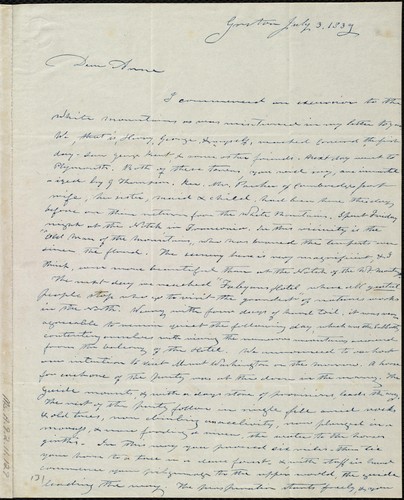 Groton July 3. 1839
Dear Anne
I commenced an excursion to the
White Mountains as was mentioned in my letter to you
We, that is, Henry, George & myself, reached Concord the first
day. Saw George Kent, & some other friends. Next day went to
Plymouth. Both of these towns, you need
by G Thompson. Rev. Mr. Parker of Cambridgeport
wife, his sister, maid & child, had been here the day
before on their return from the White Mountains. Spent Sunday
night at the Notch in Franconia. In this vicinity is the
"Old Man of the Mountains, who has braved the tempests ever
since the flood. The scenery here is very magnificent, & I
think, even more beautiful than at the Notch of the W. Mountains
The next day we reached Fabyans Hotel, where all genteel
people stop who go to visit the grandest of natures works
in the North. Weary with four days of hard toil, it was very
agreeable to remain quiet the following day,
contenting ourselves with viewing the mountains around
from the balcony of the Hotel. We announced to our host
our intention to visit Mount Washington on the morrow. A horse
for each one of the party was at the door in the morning. The
guide mounts, & with a days store of provisions leads the way.
The rest of the party follow in single file amid rocks
& old trees, now climbing, now plunged in a
morass, & now fording a river, the water to the horses
girths. In this way you proceed six miles. then tie
your horse to a tree in a dense forest, & with staff in hand
commence your pilgrimage to the upper world, the guide
leading the way. The perspiration starts freely, & you